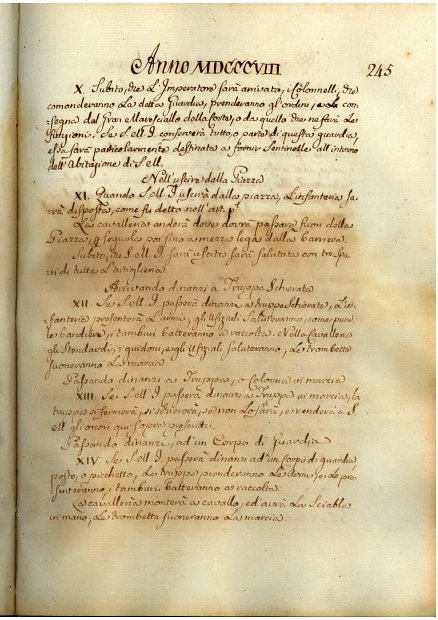 Anno MDCCCVIII
245
X. Subito, che L'Imperatore sarà arrivato, i Colonnelli, che
comanderanno La detta Guardia, prenderanno gl'ordini, e La con-
segna dal Gran Maresciallo della Corte, o da quello che ne farà Le
funzioni. Se S. M. I. conserverà tutto, o parte di questa guardia,
essa sarà particolarmente destinata a fornir Sentinelle all'intorno
dell'Abitazione di S. M.
Nell'uscire dalla Piazza
XI. Quando S. M. I. uscirà dalla piazza, L'infanteria sa-
rà disposta, come fu detto nell'art. p.º
La cavalleria anderà dove dovrà passare fuori della
Piazza, seguirla poi fino a mezza lega dalla barriera.
Subito, che S. M. I. sarà uscito sarà salutata con tre spa-
ri di tutta L'artiglieria.
Arrivando dinanzi a Truppa Schierata
XII. Se S. M. I. passerà dinanzi a truppe Schierate, L'in-
fanteria presenterà L'armi, gli Uffiziali Saluteranno, come pure
le bandiere, i tamburi batteranno a raccolta. Nella Cavalleria
gli Stendardi, i guidoni, e gli Uffiziali saluteranno, Le trombette
suoneranno La marcia.
Passando dinanzi a Truppa, o Colonna in marcia
XIII. Se S. M. I. passerà dinanzi a Truppa in marcia, la
truppa si fermerà, si schiererà, se non Lo sarà, e renderà a S.
M. gli onori qui sopra prescritti.
Passando dinanzi, ad'un Corpo di Guardia
XIV. Se S. M. I. passerà dinanzi ad'un corpo di guardia
posto, o picchetto, Le truppe prenderanno Le armi, e Le pre-
senteranno, i tamburi batteranno a raccolta.
La cavalleria monterà a cavallo, ed'avrà La Sciabla
in mano, Le trombette suoneranno La marcia.